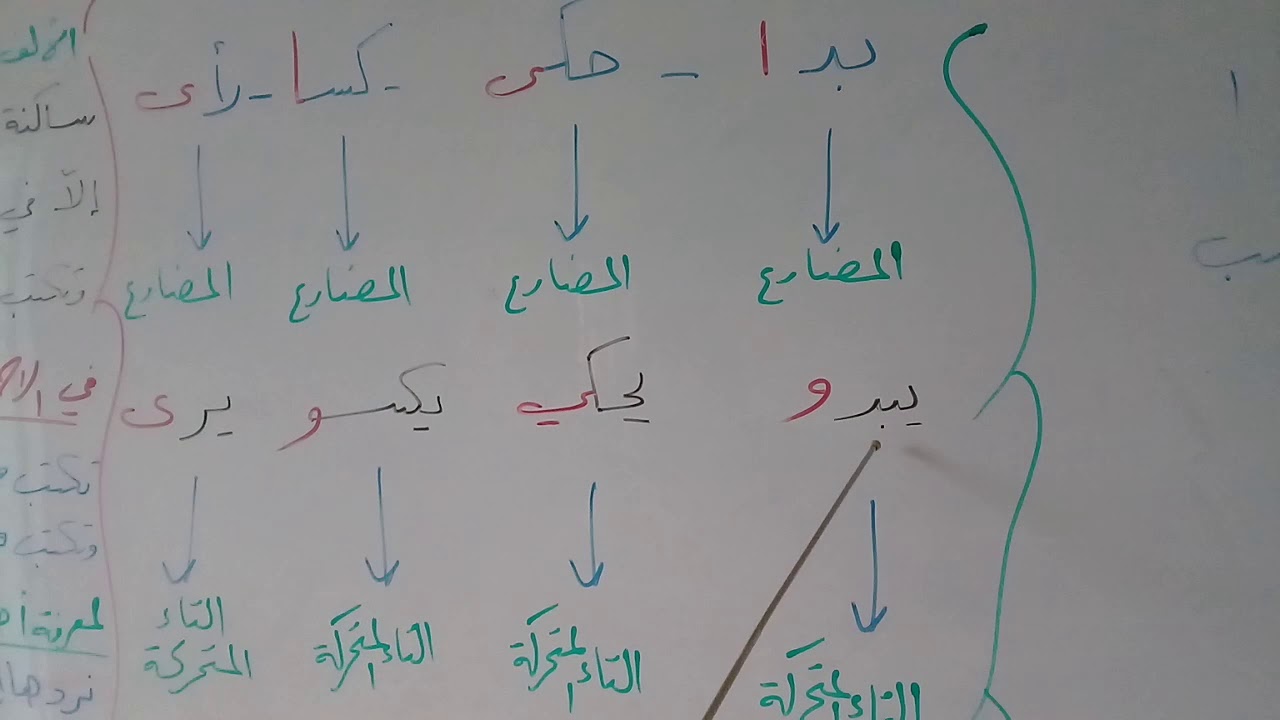 بدا - حكى - كسا - رأى
المضارع المضارع المضارع المضارع
يبدو يحكي يكسو يرى
التاء المتحركة التاء المتحركة التاء المتحركة التاء المتحركة
الألف
ساكنة
إلاّ في
وتكتب
في الأ
تكتب
وتكتب
لمعرفة أ
نردها